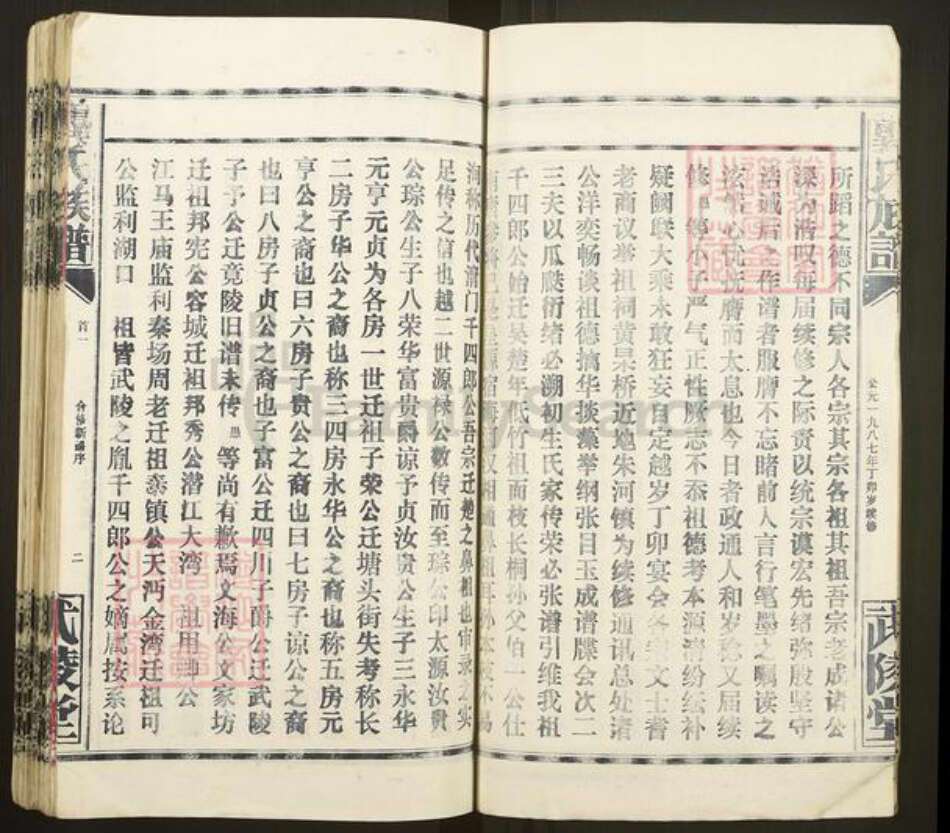 氏族谱
公元一九八七年丁卯岁续修
武陵堂
所蹈之德不同宗人各宗其宗各祖其祖吾宗老成诸公
深为浩叹每届续修之际赏以统宗谟宏先绪弥殷坚守
诰诚后之作谱者服膺不忘睹前人言行笔墨之嘱读之
泫 心忧抚膺而太息也今日者政通人和岁稔又届续
修 等小子严气正性厥志不忝祖德考本源 纷纭补
疑阙联大乘未敢狂妄自定越岁丁卯宴会各 文士耆
老商议举祖祠黄杲桥近地朱河镇为续修通讯总处诸
公洋奕畅谈祖德摛华掞藻举纲张目玉成谱牒会次二
三夫以瓜瓞衍绪必溯初生氏家传荣必张谱引维我祖
千四郎公始迁吴楚年低竹祖而枝长桐孙父伯 一公仕
海称历代清门千四郎公吾宗迁楚之鼻祖也审录之实
足传之信也越二世源禄公数传而至琮公印太源汝贵
公琮公生子八荣华富贵爵谅予贞汝贵公生子三永华
元亨元贞为各房一世迁祖子荣公迁塘头街失考称长
二房子华公之裔也称三四房永华公之裔也称五房元
亨公之裔也曰六房子贵公之裔也曰七房子谅公之裔
也曰八房子贞公之裔也子富公迁四川子爵公迁武陵
子予公迁竟陵旧谱未传愚等尚有歉焉文海公文家坊
迁祖邦宪公容城迁祖邦秀公潜江大湾 祖用 公
江马王庙监利秦场周老迁祖 镇公天沔金湾迁祖可
公监利潮口 祖皆武陵之胤千四郎公之嫡属按系论
氏族谱
首一
合修新谱序
二
武陵堂